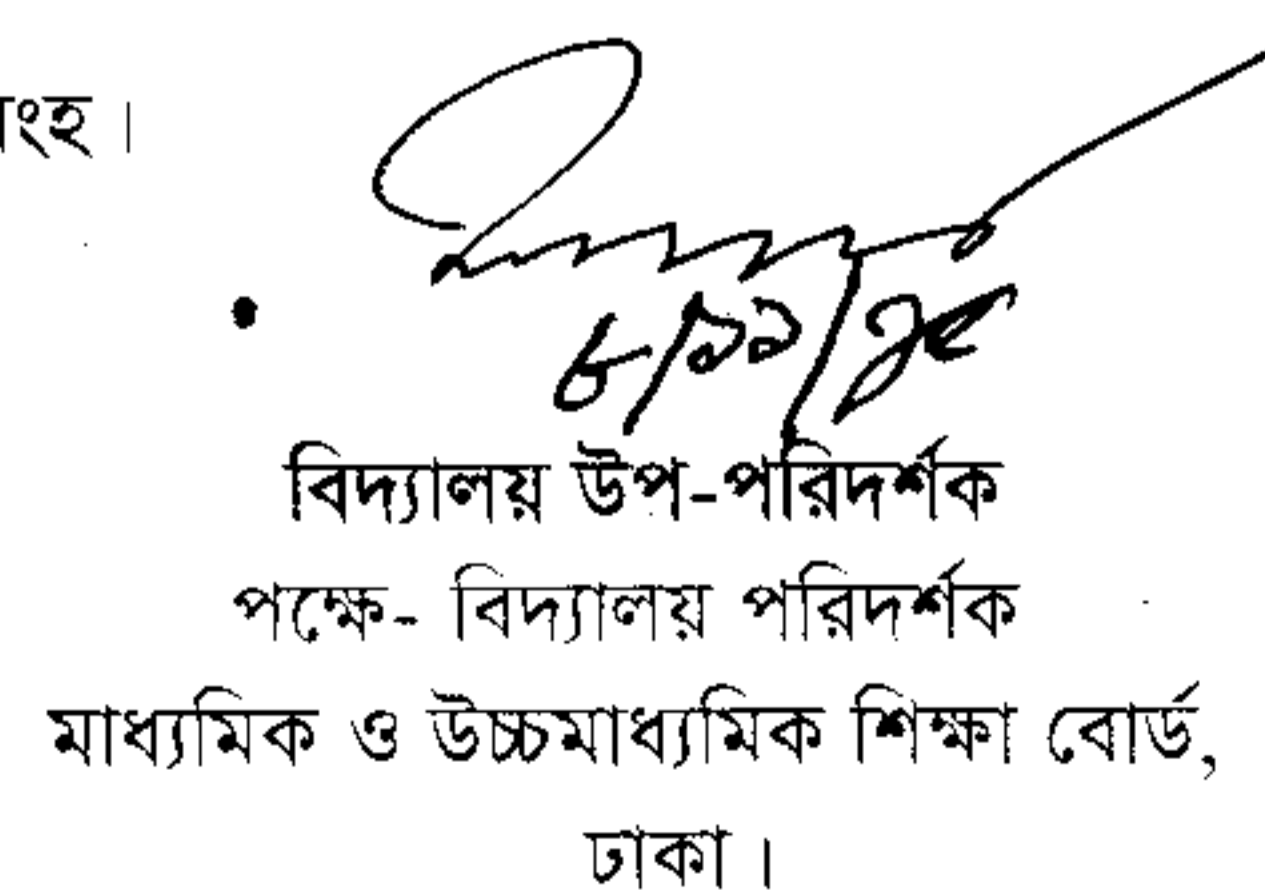 ংহ।
৮/১১/১৫
বিদ্যালয় উপ-পরিদর্শক
পক্ষে- বিদ্যালয় পরিদর্শক
মাধ্যমিক ও উচ্চমাধ্যমিক শিক্ষা বোর্ড,
ঢাকা।